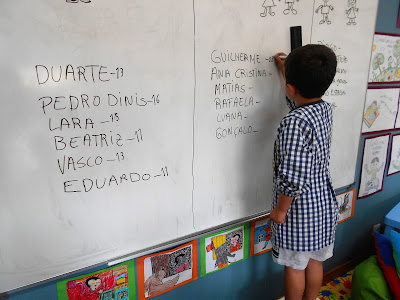 DUARTE-13
PEDRO DINIS-16
LARA-15
BEATRIZ-11
VASCO-13
EDUARDO-11
GUILHERME-
ANA CRISTINA-
MATIAS-
RAFAELA-
LUANA-
GONÇALO-